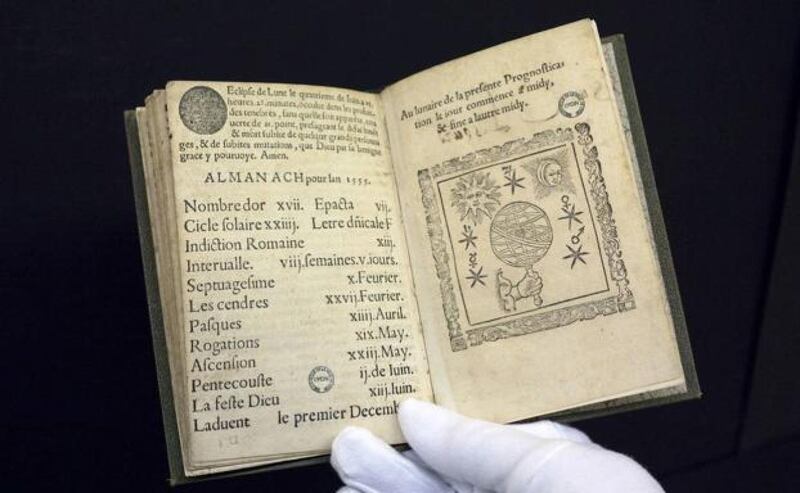 Eclipse de Lune le quatriesme de Iuin a xj.
heures 21. minutes, occulte dens les profun
des tenebres, sans quelle soit apparente, cou
uerte de 21. point, presageant le
& mort subite de quelque grand personna
ges, & de subites mutations, que Dieu par sa benigne
grace y pouruoye. Amen.
ALMANACH pour lan 1555.
Nombre dor xvij. Epacta vij.
Cicle solaire xxiiij. Letre dñicale F
Indiction Romaine xiij.
Interualle. viij. semaines.v.iours.
Septuagesime x.Feurier.
Les cendres xxvij.Feurier.
Pasques xiiij.Auril.
Rogations xix.May.
Ascension xxiij.May.
Pentecouste ij.de Iuin.
La feste Dieu xiij.Iuin.
Laduent le premier Decemb
Au lunaire de la presente Prognostica
tion le iour commence a midy,
& fine a lautre midy.